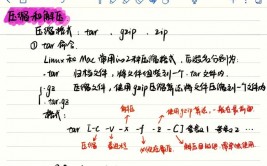 压缩和解压
压缩格式：tar 、gzip 、zip
① tar 命令
Linux 和 Mac 常用的2种压缩格式，压缩名分别为：
.tar 归档文件，将文件组装到一个.tar文件内
.gz 压缩文件，使用gzip压缩算法将文件压缩到一个文件内
.tar.gz
格式：
解压
使用gzip算法，一般在最前面
tar [-c -v -x -f -z -C] 参数1 参数2 ...
压缩
看进程